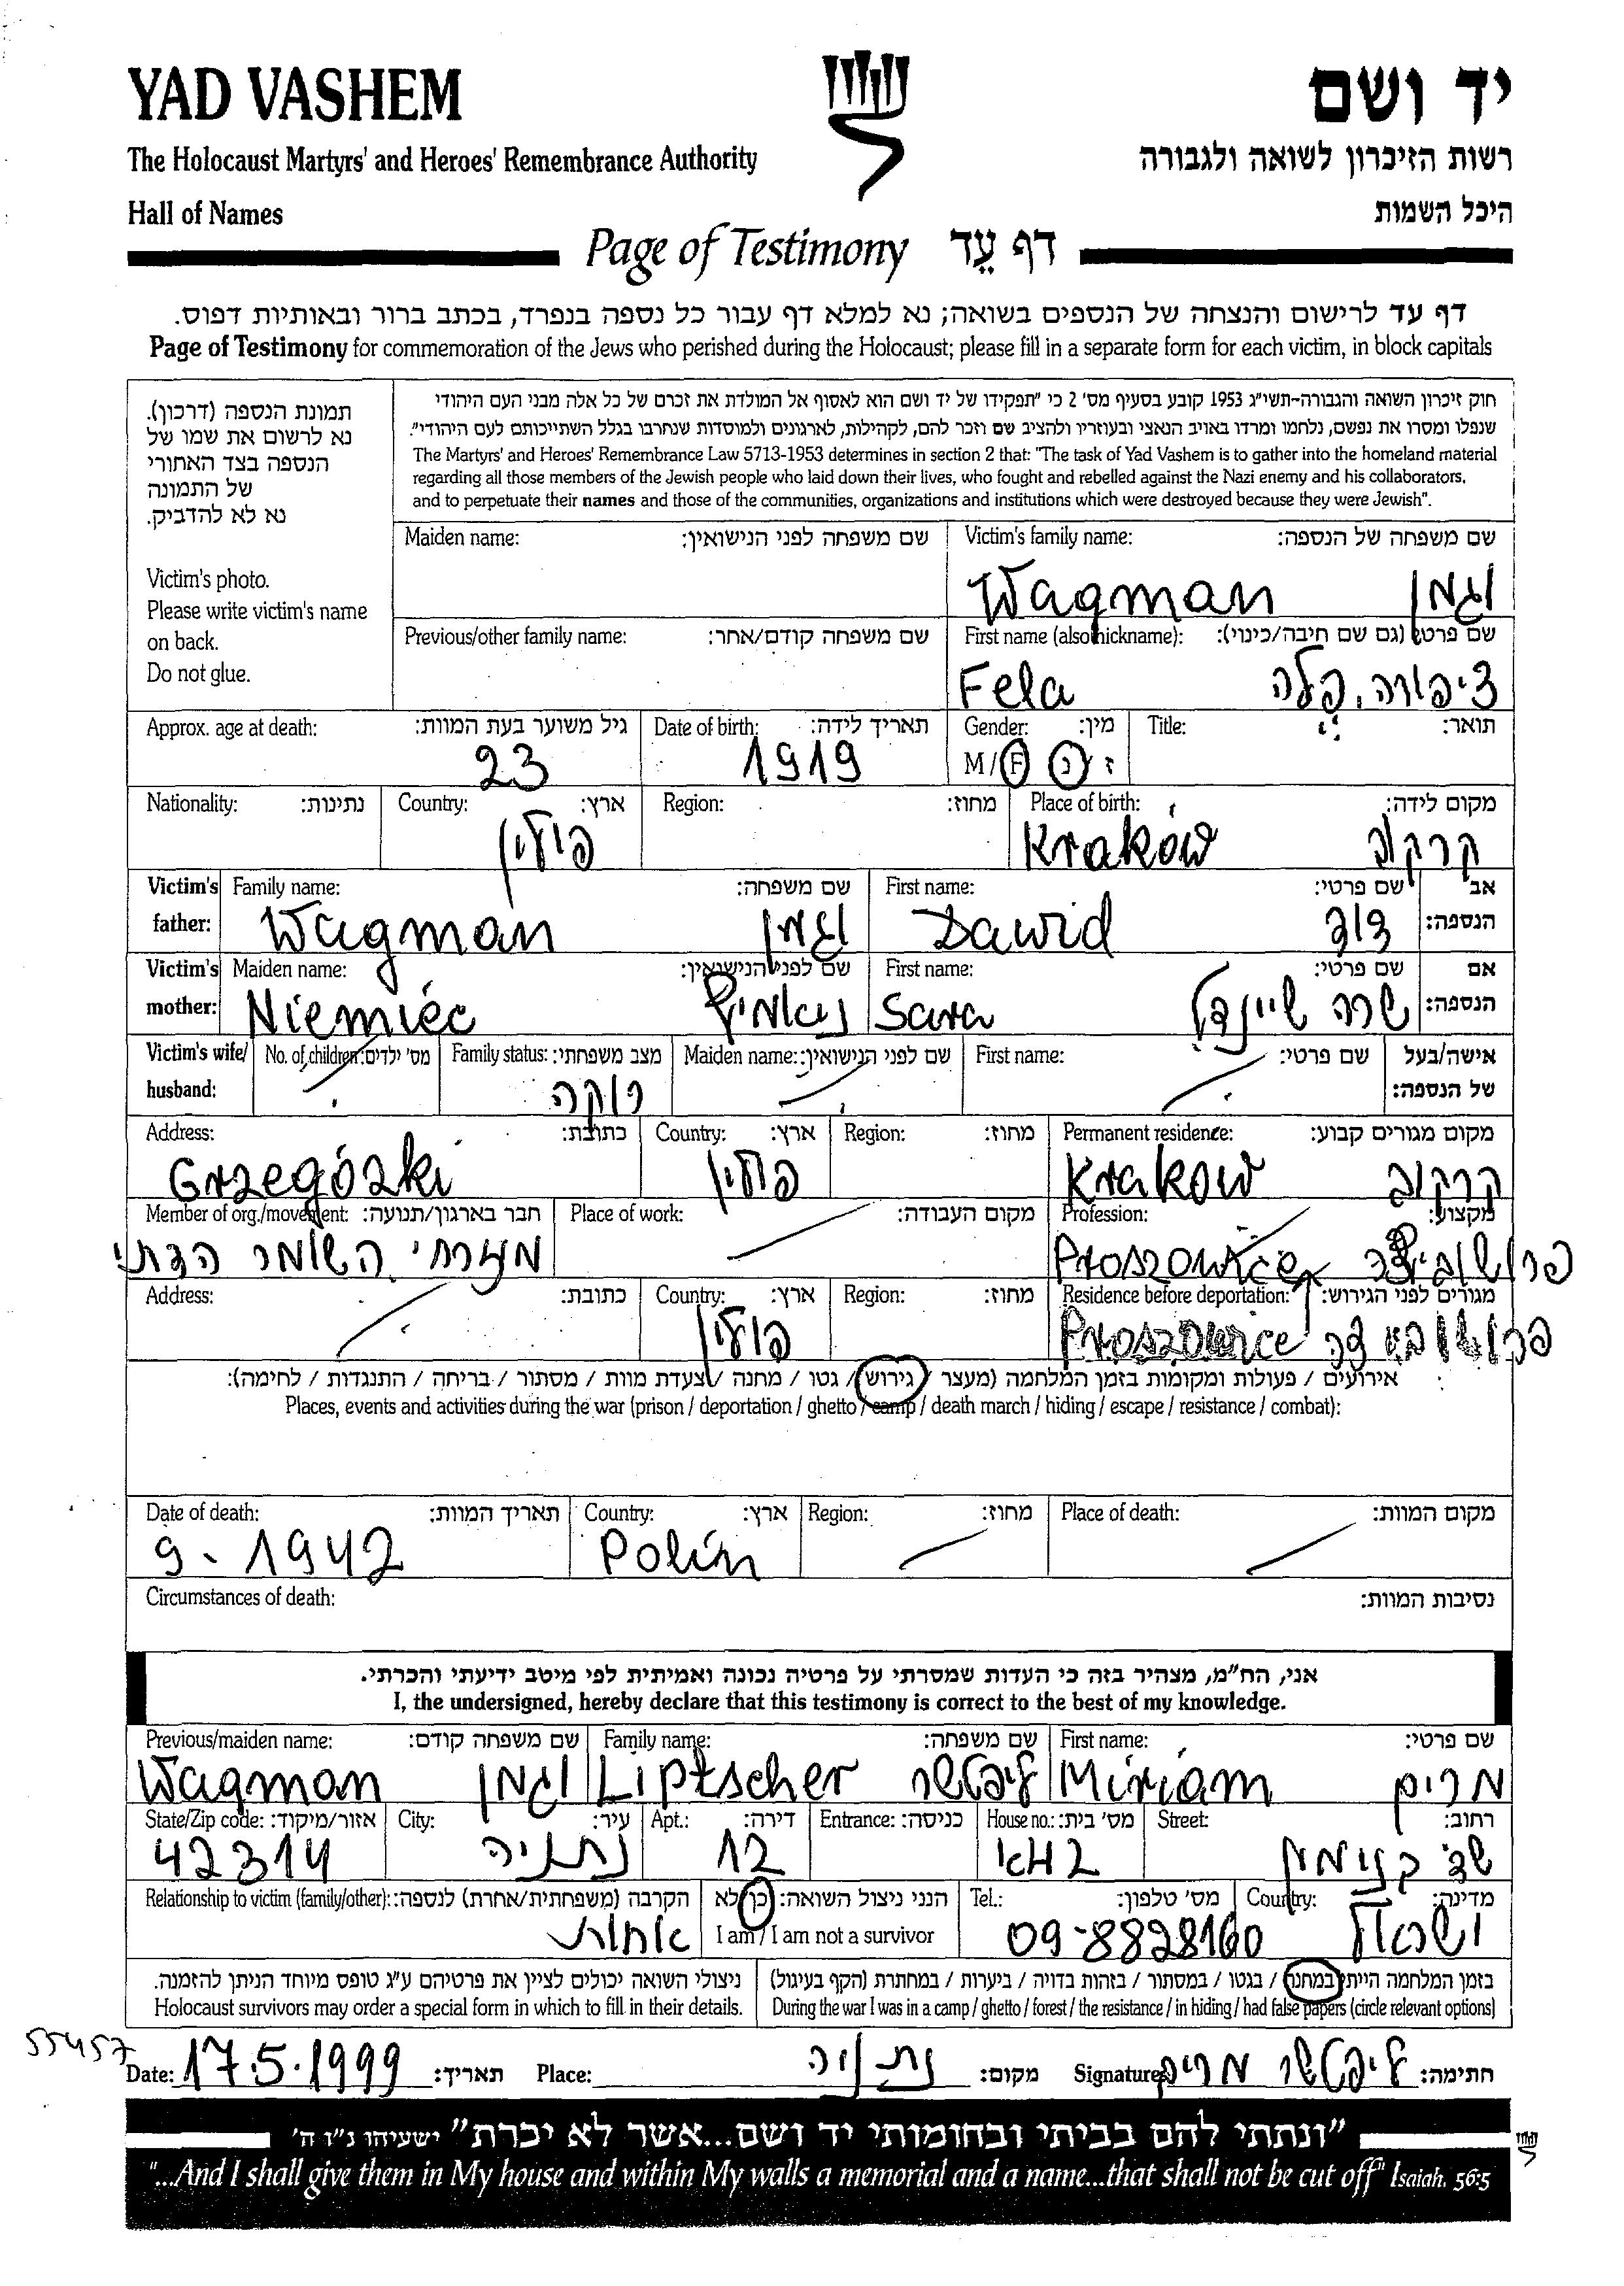 YAD VASHEM
יד ושם
The Holocaust Martyrs' and Heroes' Remembrance Authority
רשות הזיכרון לשואה ולגבורה
Hall of Names
היכל השמות
Page of Testimony דף עֵד
דף עד לרישום והנצחה של הנספים בשואה; נא למלא דף עבור כל נספה בנפרד, בכתב ברור ובאותיות דפוס.
Page of Testimony for commemoration of the Jews who perished during the Holocaust; please fill in a separate form for each victim, in block capitals
תמונת הנספה (דרכון).
נא לרשום את שמו של
הנספה בצד האחורי
של התמונה
נא לא להדביק.
Victim's photo.
Please write victim's name
on back.
Do not glue.
חוק זיכרון השואה והגבורה-תשי"ג 1953 קובע בסעיף מס' 2 כי "תפקידו של יד ושם הוא לאסוף אל המולדת את זכרם של כל אלה מבני העם היהודי
שנפלו ומסרו את נפשם, נלחמו ומרדו באויב הנאצי ובעוזריו ולהציב שם וזכר להם, לקהילות, לארגונים ולמוסדות שנחרבו בגלל השתייכותם לעם היהודי".
The Martyrs' and Heroes' Remembrance Law 5713-1953 determines in section 2 that: "The task of Yad Vashem is to gather into the homeland material
regarding all those members of the Jewish people who laid down their lives, who fought and rebelled against the Nazi enemy and his collaborators,
and to perpetuate their names and those of the communities, organizations and institutions which were destroyed because they were Jewish".
Maiden name: שם משפחה לפני הנישואין:
Victim's family name: שם משפחה של הנספה:
Wagman וגמן
Previous/other family name: שם משפחה קודם/אחר:
First name (also nickname): שם פרטי (גם שם חיבה/כינוי):
Fela ציפורה, פלה
Approx. age at death: גיל משוער בעת המוות:
23
Date of birth: תאריך לידה:
1919
Gender: מין:
M / F ז / נ
Title: תואר:
Nationality: נתינות:
Country: ארץ:
פולין
Region: מחוז:
Place of birth: מקום לידה:
Kraków קרקוב
Victim's father: Family name: שם משפחה:
Wagman וגמן
First name: שם פרטי: אב הנספה:
Dawid דוד
Victim's mother: Maiden name: שם לפני הנישואין:
Niemiec ניאמיץ
First name: שם פרטי: אם הנספה:
Sara שרה שיינדל
Victim's wife/ husband: No. of children: מס' ילדים:
Family status: מצב משפחתי:
רווקה
Maiden name: שם לפני הנישואין:
First name: שם פרטי: אישה/בעל של הנספה:
Address: כתובת:
Grzegórzki
Country: ארץ:
פולין
Region: מחוז:
Permanent residence: מקום מגורים קבוע:
Krakow קרקוב
Member of org./movement: חבר בארגון/תנועה:
מזרחי השומר הדתי
Place of work: מקום העבודה:
Profession: מקצוע:
Proszowice פרושוביצה
Address: כתובת:
Country: ארץ:
פולין
Region: מחוז:
Residence before deportation: מגורים לפני הגירוש:
Proszowice
אירועים / פעולות ומקומות בזמן המלחמה (מעצר / גירוש / גטו / מחנה / צעדת מוות / מסתור / בריחה / התנגדות / לחימה):
Places, events and activities during the war (prison / deportation / ghetto / camp / death march / hiding / escape / resistance / combat):
Date of death: תאריך המוות:
9 - 1942
Country: ארץ:
Polin
Region: מחוז:
Place of death: מקום המוות:
Circumstances of death: נסיבות המוות:
אני, הח"מ, מצהיר בזה כי העדות שמסרתי על פרטיה נכונה ואמיתית לפי מיטב ידיעתי והכרתי.
I, the undersigned, hereby declare that this testimony is correct to the best of my knowledge.
Previous/maiden name: שם משפחה קודם:
Wagman וגמן
Family name: שם משפחה:
Liptscher ליפטשר
First name: שם פרטי:
Miriam מרים
State/Zip code: אזור/מיקוד:
42314
City: עיר:
נתניה
Apt.: דירה:
12
Entrance: כניסה:
House no.: מס' בית:
Street: רחוב:
Relationship to victim (family/other): הקרבה (משפחתית/אחרת) לנספה:
אחות
הנני ניצול השואה: כן / לא
I am / I am not a survivor
Tel.: מס' טלפון:
09-8828160
Country: מדינה:
ישראל
ניצולי השואה יכולים לציין את פרטיהם ע"ג טופס מיוחד הניתן להזמנה.
Holocaust survivors may order a special form in which to fill in their details.
בזמן המלחמה הייתי במחנה / בגטו / במסתור / בזהות בדויה / ביערות / במחתרת (הקף בעיגול)
During the war I was in a camp / ghetto / forest / the resistance / in hiding / had false papers (circle relevant options)
55457
Date: 17.5.1999 תאריך: Place: נתניה מקום: Signature: ליפטשר מרים חתימה:
"ונתתי להם בביתי ובחומותי יד ושם...אשר לא יכרת" ישעיהו נ"ו ה'
"...And I shall give them in My house and within My walls a memorial and a name...that shall not be cut off" Isaiah. 56:5